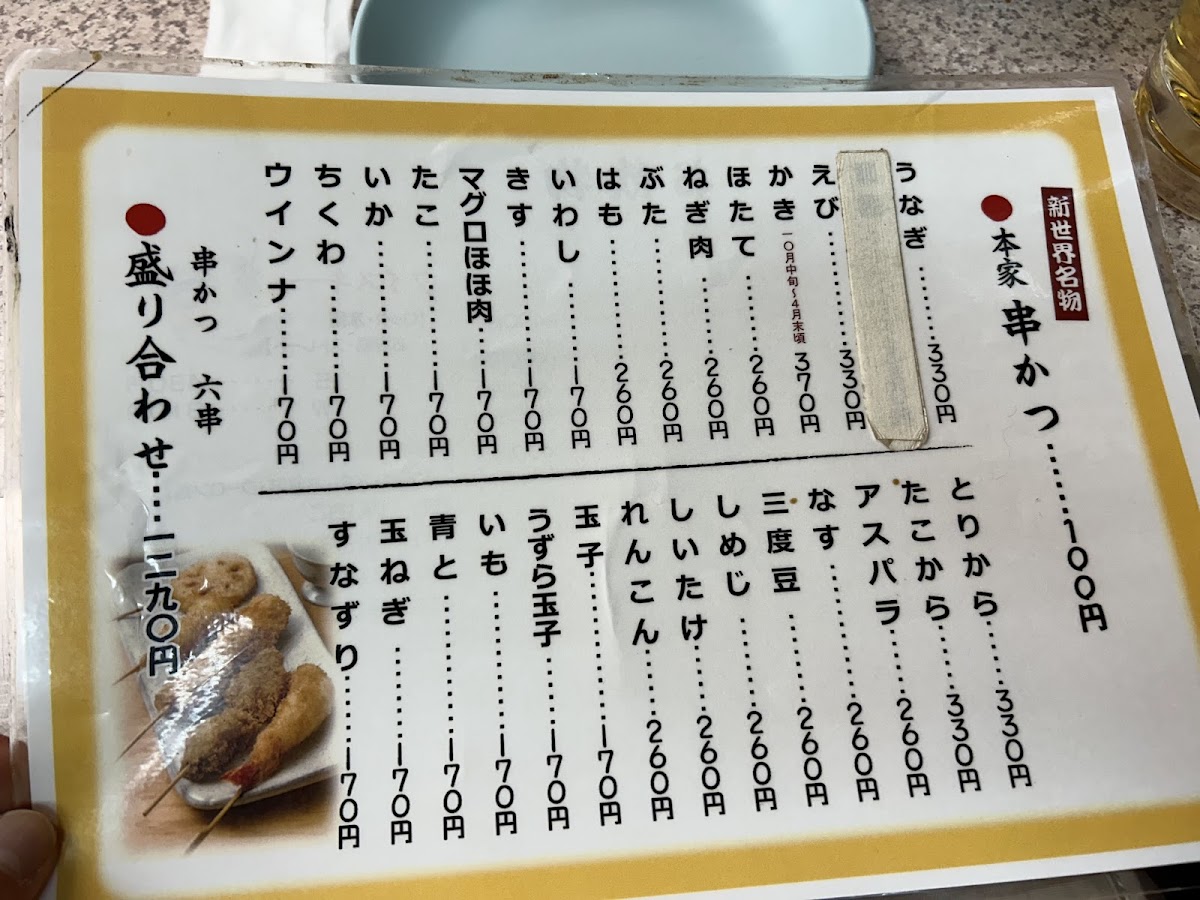 新世界名物
本家 串かつ……100円
うなぎ……330円
えび……330円
かき 一〇月中旬〜4月末頃 370円
ほたて……260円
ねぎ肉……260円
ぶた……260円
はも……260円
いわし……170円
きす……170円
マグロほほ肉……170円
たこ……170円
いか……170円
ちくわ……170円
ウインナ……170円
とりから……330円
たこから……330円
アスパラ……260円
なす……260円
三度豆……260円
しめじ……260円
しいたけ……260円
れんこん……260円
玉子……170円
うずら玉子……170円
いも……170円
青と……170円
玉ねぎ……170円
すなずり……170円
串かつ 六串
盛り合わせ……一二九〇円